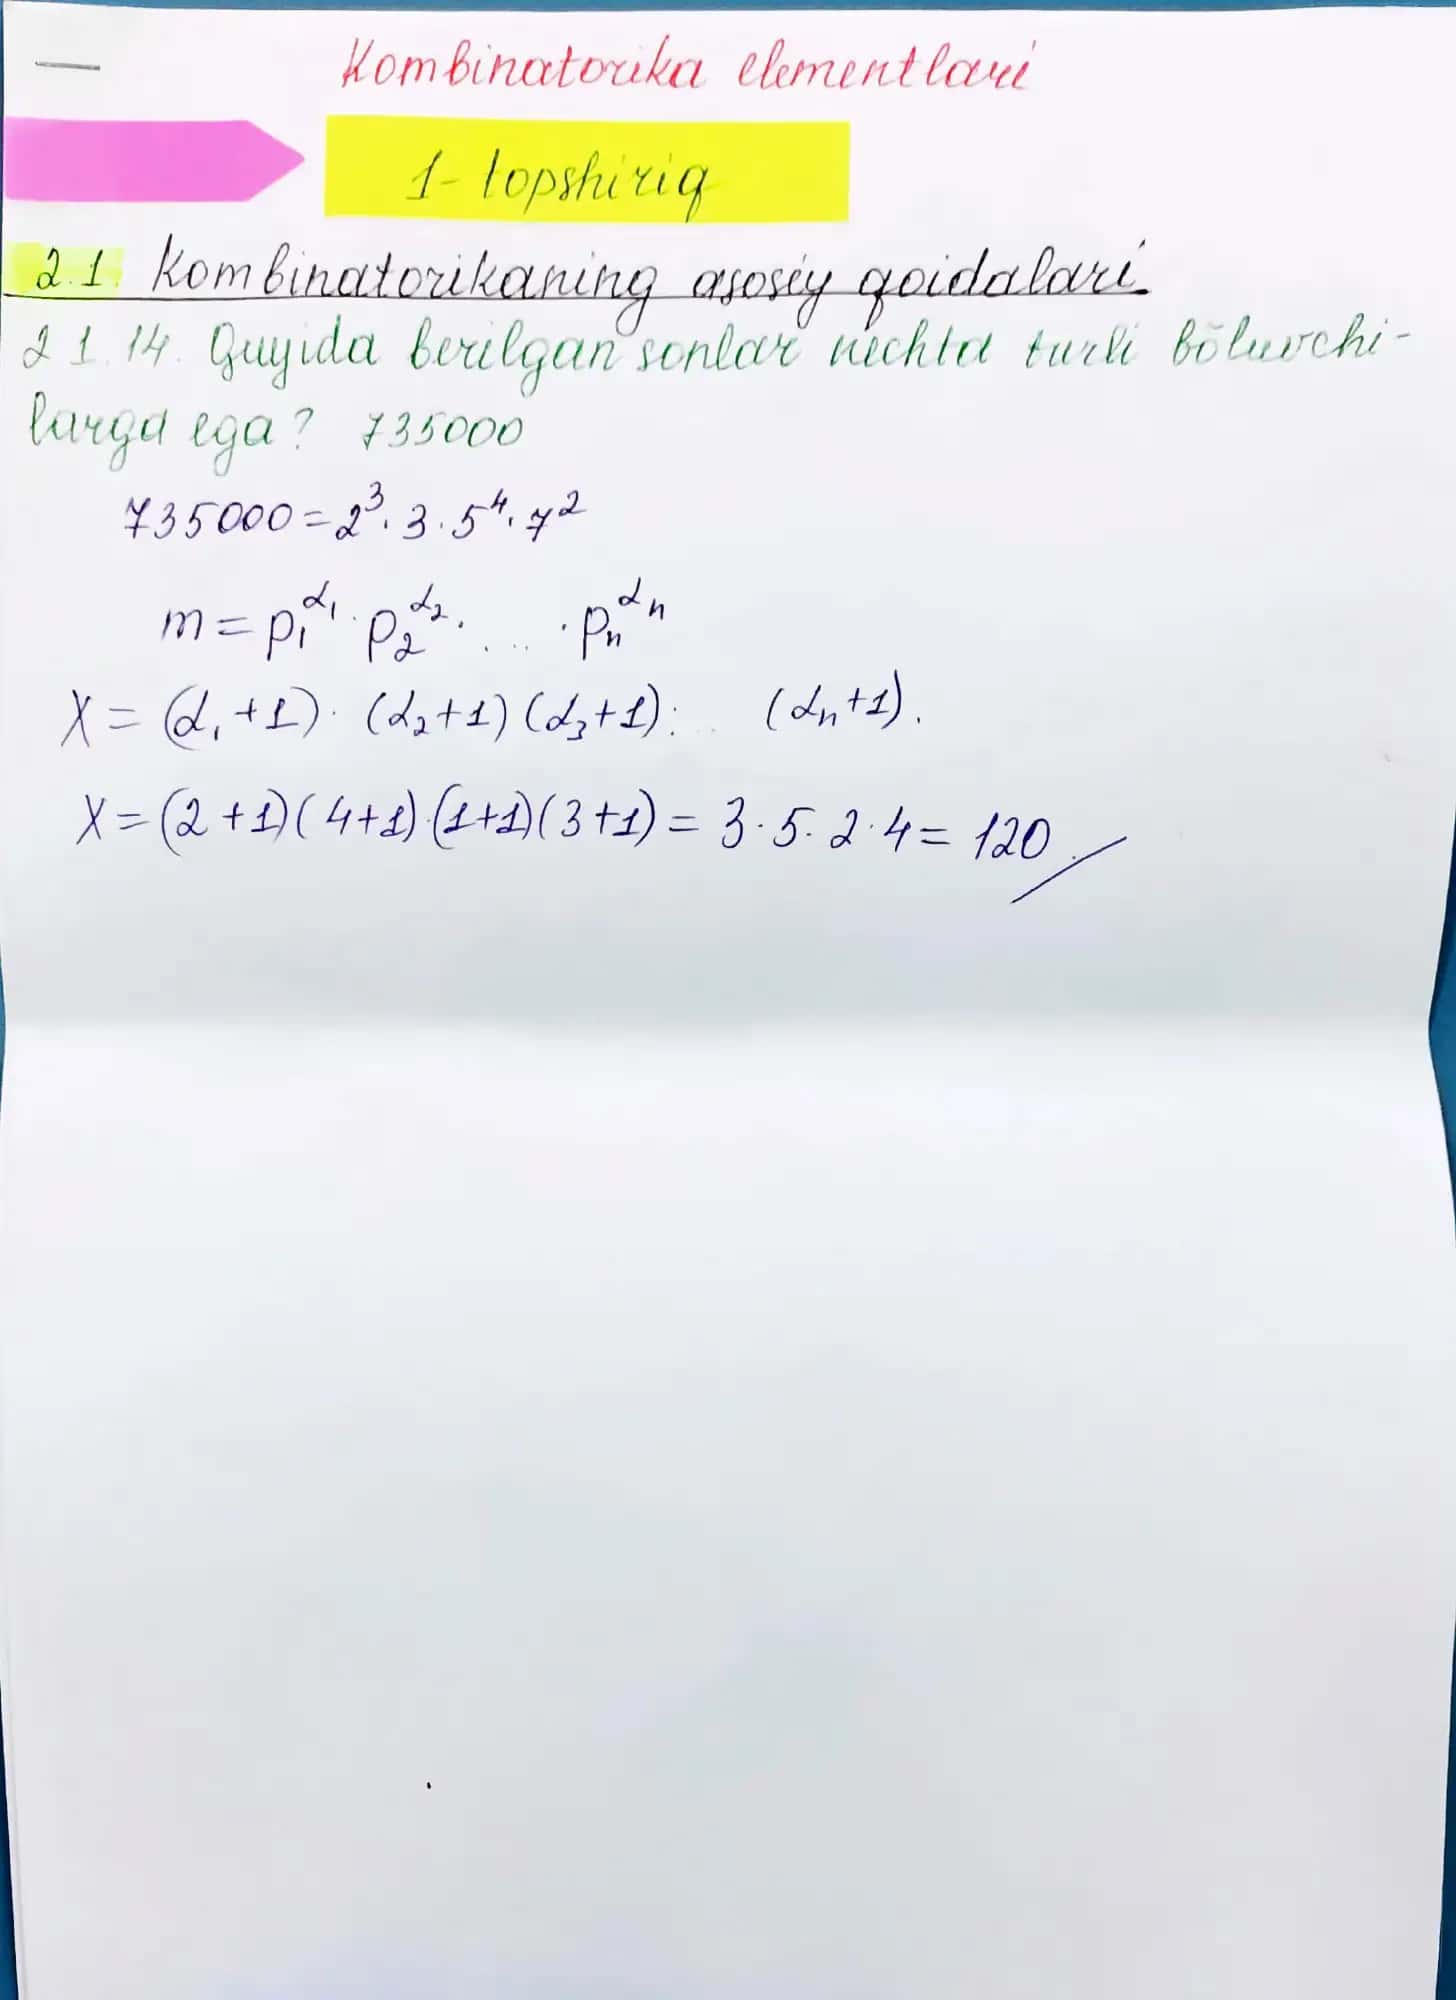 Kombinatorika elementlari
1-topshiriq
2.1. Kombinatorikaning asosiy qoidalari.
2.1.14. Quyida berilgan sonlar nechta turli bõluvchi-
larga ega? 735000
735000 = 2³ · 3 · 5⁴ · 7²
m = p₁^α₁ · p₂^α₂ · ... · pₙ^αₙ
X = (α₁+1) · (α₂+1)(α₃+1)·... (αₙ+1).
X = (2+1)(4+1)·(1+1)(3+1) = 3·5·2·4 = 120